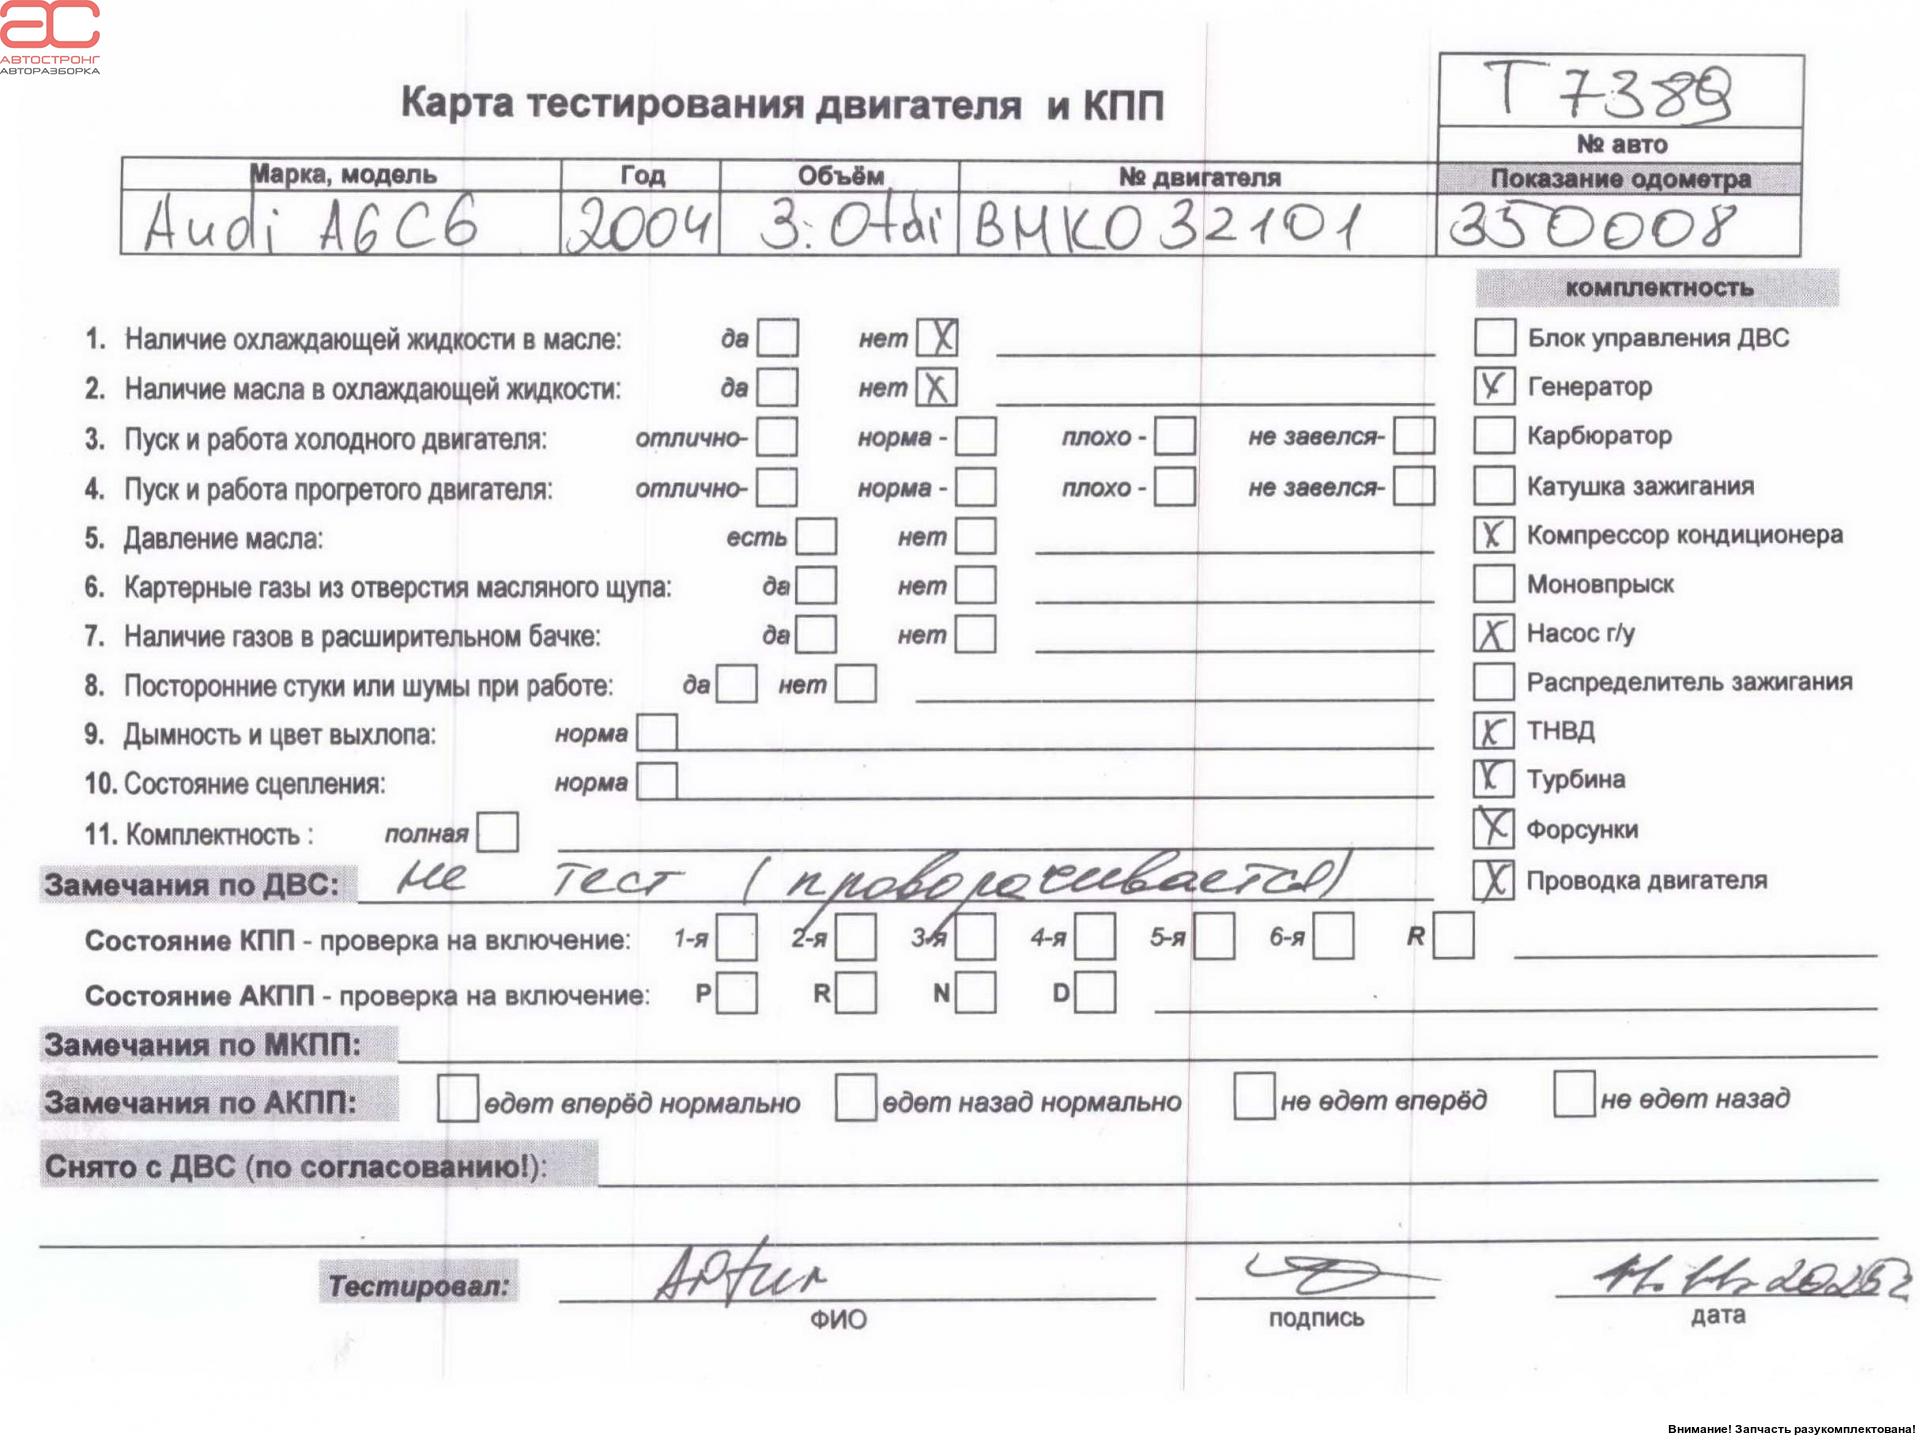 АС
АВТОСТРОНГ
АВТОРАЗБОРКА
Т 7389
Карта тестирования двигателя и КПП
№ авто
Марка, модель Год Объём № двигателя Показание одометра
Audi A6C6 2004 3.0tdi BMK032101 350008
комплектность
1. Наличие охлаждающей жидкости в масле: да нет X Блок управления ДВС
2. Наличие масла в охлаждающей жидкости: да нет X X Генератор
3. Пуск и работа холодного двигателя: отлично- норма - плохо - не завелся- Карбюратор
4. Пуск и работа прогретого двигателя: отлично- норма - плохо - не завелся- Катушка зажигания
5. Давление масла: есть нет X Компрессор кондиционера
6. Картерные газы из отверстия масляного щупа: да нет Моновпрыск
7. Наличие газов в расширительном бачке: да нет X Насос г/у
8. Посторонние стуки или шумы при работе: да нет Распределитель зажигания
9. Дымность и цвет выхлопа: норма X ТНВД
10. Состояние сцепления: норма X Турбина
11. Комплектность : полная X Форсунки
Замечания по ДВС: не тест (проворачивается) X Проводка двигателя
Состояние КПП - проверка на включение: 1-я 2-я 3-я 4-я 5-я 6-я R
Состояние АКПП - проверка на включение: P R N D
Замечания по МКПП:
Замечания по АКПП: едет вперёд нормально едет назад нормально не едет вперёд не едет назад
Снято с ДВС (по согласованию!):
Тестировал: Artur
ФИО подпись дата
Внимание! Запчасть разукомплектована!